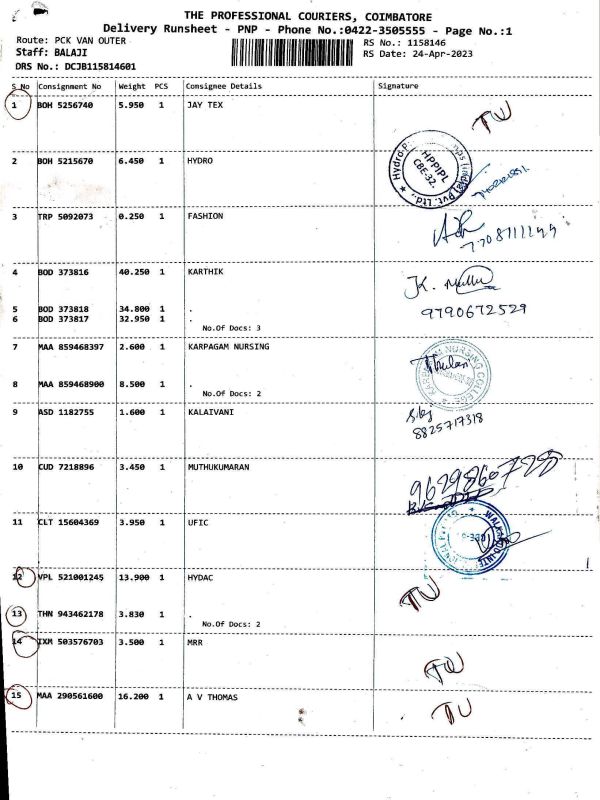 THE PROFESSIONAL COURIERS, COIMBATORE
Delivery Runsheet - PNP - Phone No.:0422-3505555 - Page No.:1
Route: PCK VAN OUTER RS No.: 1158146
Staff: BALAJI RS Date: 24-Apr-2023
DRS No.: DCJB115814601
S No Consignment No Weight PCS Consignee Details Signature
1 BOH 5256740 5.950 1 JAY TEX TW
2 BOH 5215670 6.450 1 HYDRO
HPPIPL
CBE-32.
3 TRP 5092073 0.250 1 FASHION
4 BOD 373816 40.250 1 KARTHIK
5 BOD 373818 34.800 1 . 9790672529
6 BOD 373817 32.950 1 .
No.Of Docs: 3
7 MAA 859468397 2.600 1 KARPAGAM NURSING
8 MAA 859468900 8.500 1 .
No.Of Docs: 2
9 ASD 1182755 1.600 1 KALAIVANI
8825717318
10 CUD 7218896 3.450 1 MUTHUKUMARAN
9629860728
11 CLT 15604369 3.950 1 UFIC
12 VPL 521001245 13.900 1 HYDAC TW
13 THN 943462178 3.830 1 .
No.Of Docs: 2
14 IXM 503576703 3.500 1 MRR TW
15 MAA 290561600 16.200 1 A V THOMAS TW